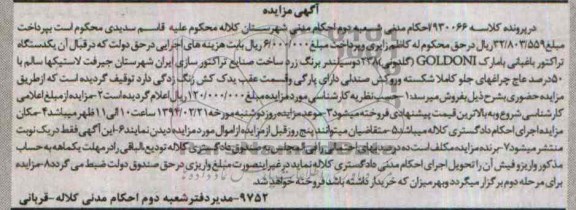 آگهی مزایده
در پرونده کلاسه ۹۳۰۰۶۶ احکام مدنی شعبه دوم احکام مدنی شهرستان کلاله محکوم علیه قاسم سدیدی محکوم است بپرداخت
مبلغ ۳۲/۸۰۳/۵۵۹ ریال در حق محکوم له کاظم زابری و پرداخت مبلغ ۶/۰۰۰/۰۰۰ ریال بابت هزینه های اجرایی در حق دولت که در قبال آن یکدستگاه
تراکتور باغبانی با مارک GOLDONI (گلدونی) ۲۳۸ دو سیلندر برنگ زرد ساخت صنایع تراکتور سازی ایران شهرستان جیرفت لاستیکها سالم با
۵۰ درصد عاج چراغهای جلو کاملا شکسته و روکش صندلی دارای پارگی و قسمت عقب یدک کش زنگ زدگی دارد توقیف گردیده است که از طریق
مزایده حضوری بشرح ذیل بفروش میرسد: ۱- حسب نظریه کارشناسی مورد مزایده مبلغ ۱۲۰/۰۰۰/۰۰۰ ریال اعلام گردیده است ۲- مزایده از مبلغ اعلامی
کارشناسی شروع و به بالاترین قیمت پیشنهادی فروخته میشود ۳- موعد مزایده روز دوشنبه مورخه ۱۳۹۴/۰۲/۲۱ از ساعت ۱۰ الی ۱۱ ظهر میباشد ۴- مکان
مزایده اجرای احکام دادگستری کلاله میباشد ۵- متقاضیان میتوانند پنج روز قبل از مزایده از اموال مورد مزایده دیدن نمایند ۶- این آگهی فقط در یک نوبت
منتشر میشود ۷- برنده مزایده مکلف است ده درصد بهای احتمالی را فی المجلس به صندوق دادگستری کلاله تودیع الباقی را در مهلت یکماهه به حساب
مذکور واریز و فیش آن را تحویل اجرای احکام مدنی دادگستری کلاله نماید در غیر اینصورت مبلغ واریزی در حق صندوق دولت ضبط می گردد ۸- مزایده
برای مرحله دوم برگزار میگردد و بهر میزان که خریدار داشته باشد فروخته خواهد شد.
۹۷۵۲- مدیر دفتر شعبه دوم احکام مدنی کلاله- قربانی